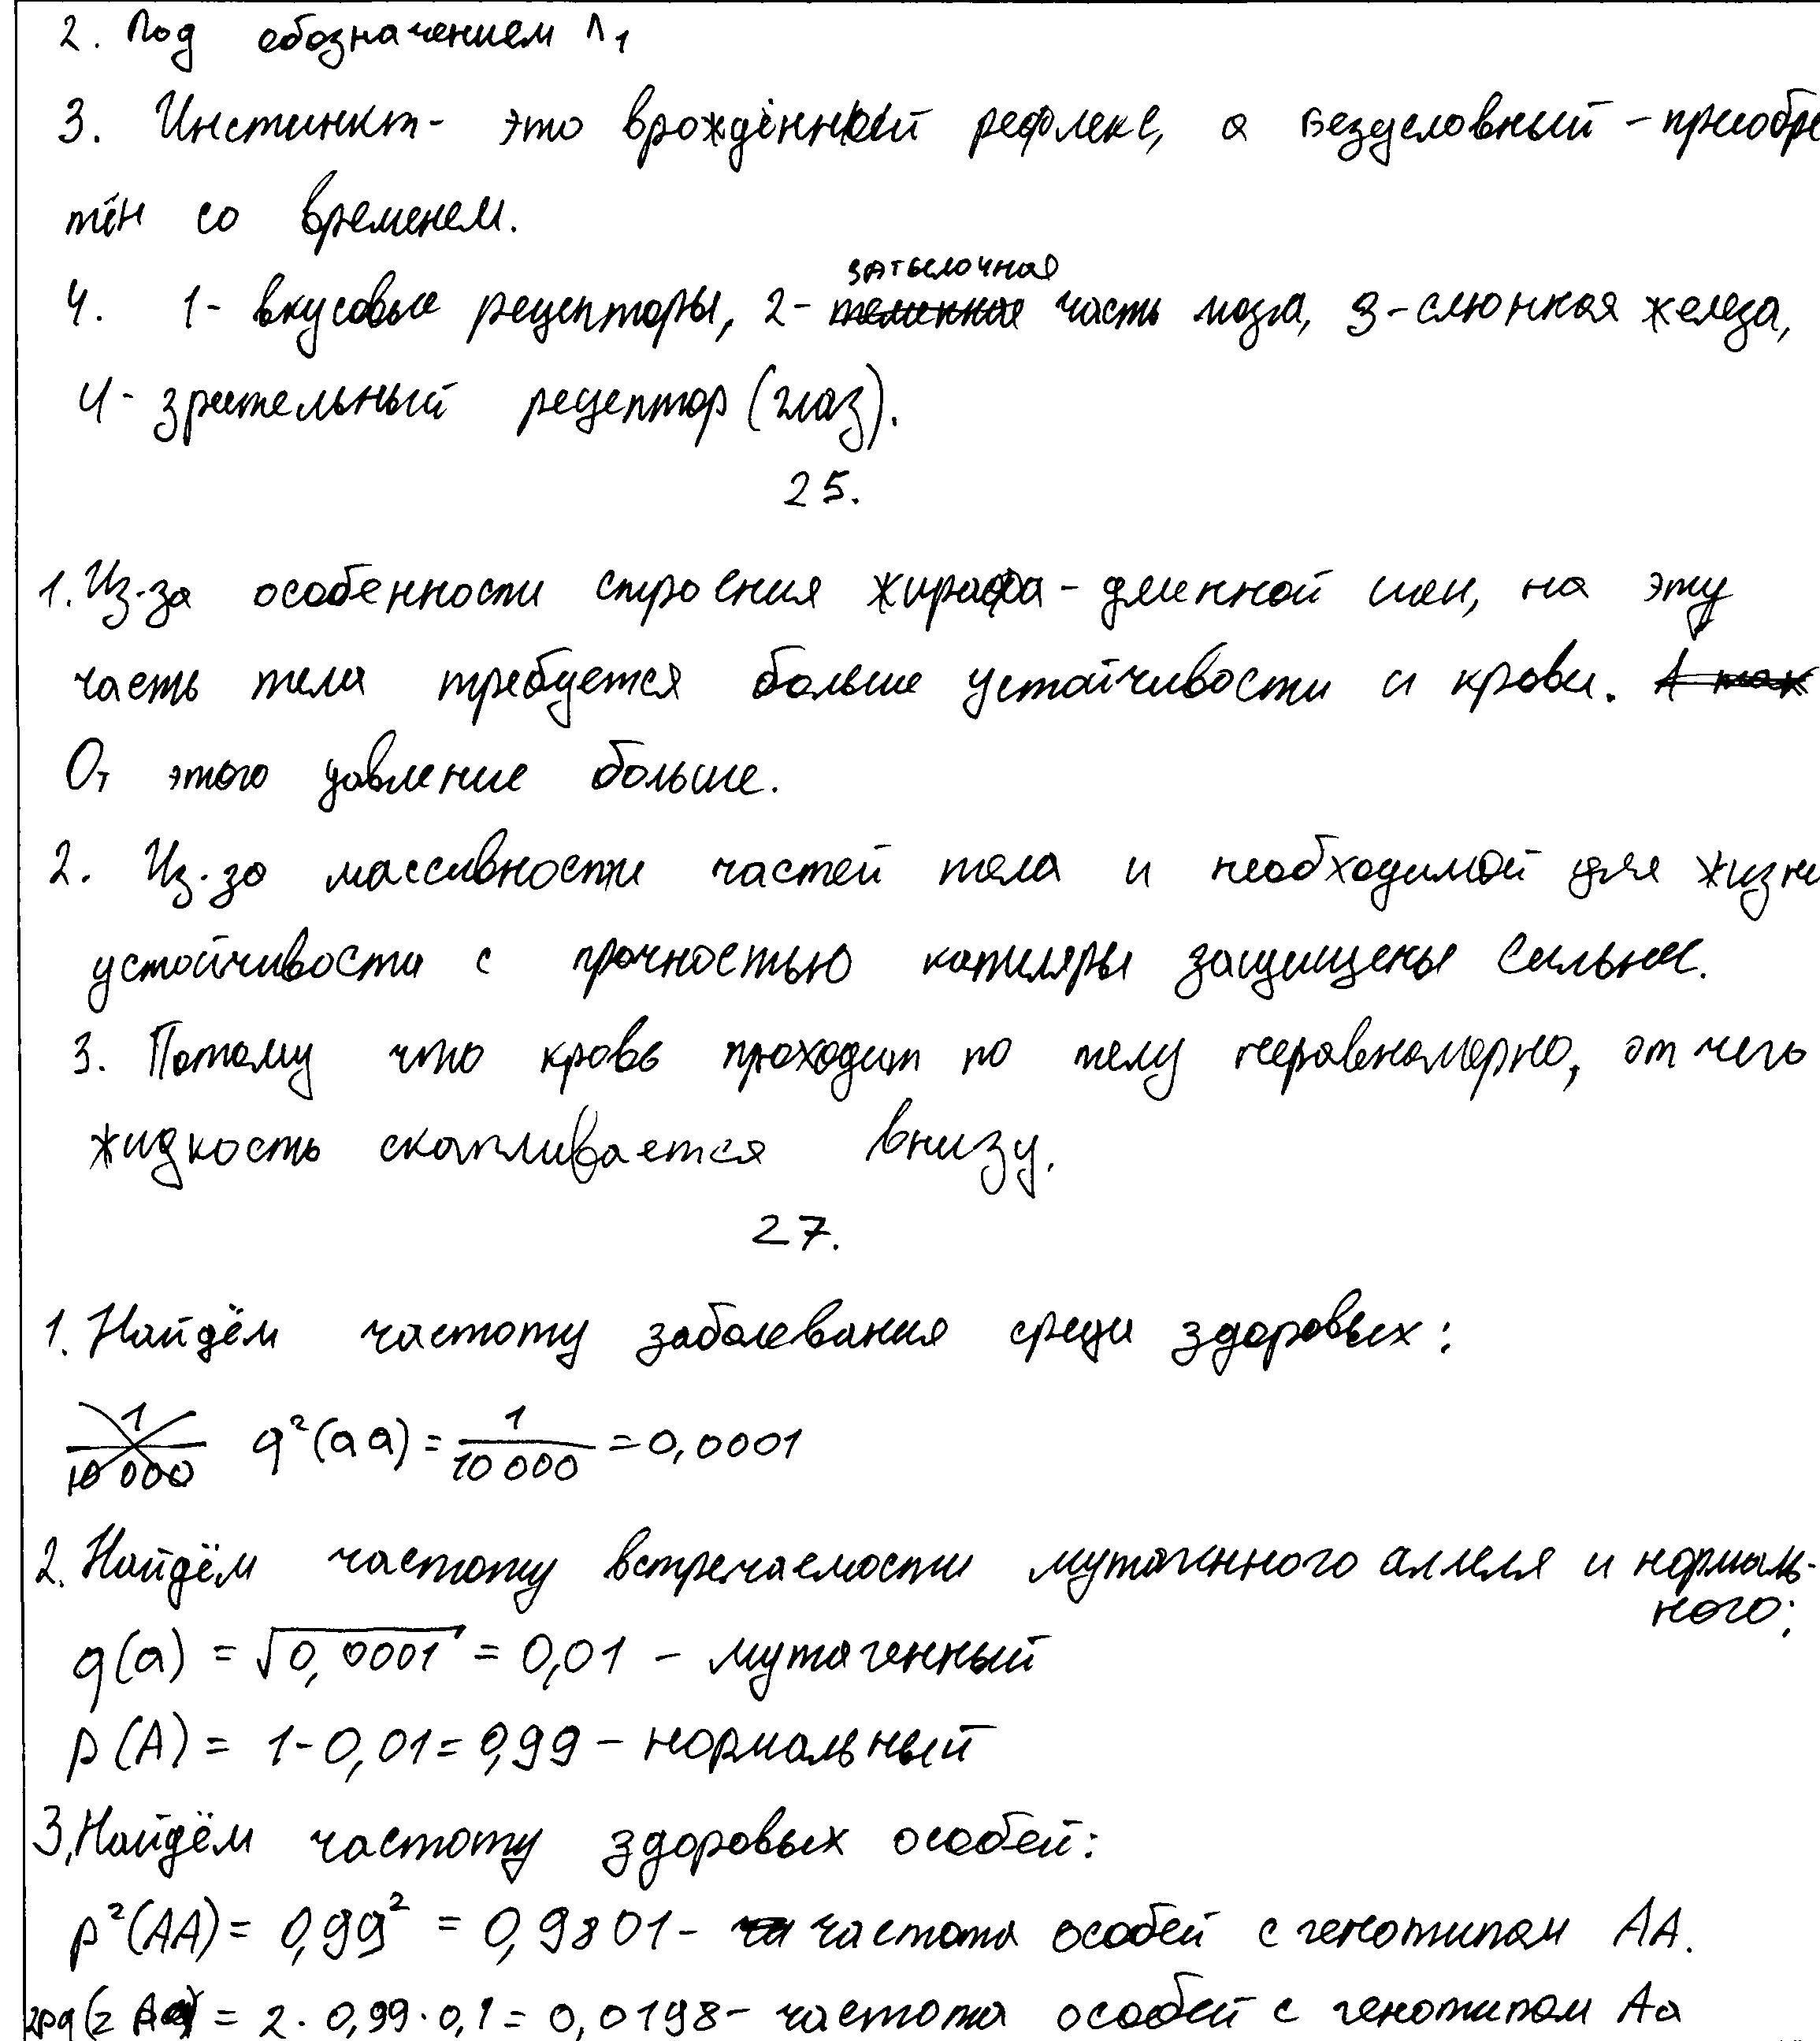 2. Под обозначением Л1
3. Инстинкт- это врождённый рефлекс, а безусловный - приобре
тён со временем.
затылочная
4. 1- вкусовые рецепторы, 2- теменная часть мозга, 3-слюнная железа,
4- зрительный рецептор (глаз).
25.
1. Из-за особенности строения жирафа - длинной шеи, на эту
часть тела требуется больше устойчивости и крови. А так
От этого давление больше.
2. Из-за массивности частей тела и необходимой для жизни
устойчивости с прочностью капиляры защищены сильнее.
3. Потому что кровь проходит по телу неравномерно, от чего
жидкость скапливается внизу.
27.
1. Найдём частоту заболевания среди здоровых:
1/10 000 q²(aa) = 1/10 000 = 0,0001
2. Найдём частоту встречаемости мутагенного аллеля и нормаль-
ного:
q(a) = √0,0001 = 0,01 - мутагенный
p(A) = 1-0,01 = 0,99 - нормальный
3. Найдём частоту здоровых особей:
p²(AA) = 0,99² = 0,9801 - частота особей с генотипом AA.
2pq (2 Aa) = 2·0,99·0,1 = 0,0198 - частота особей с генотипом Aa